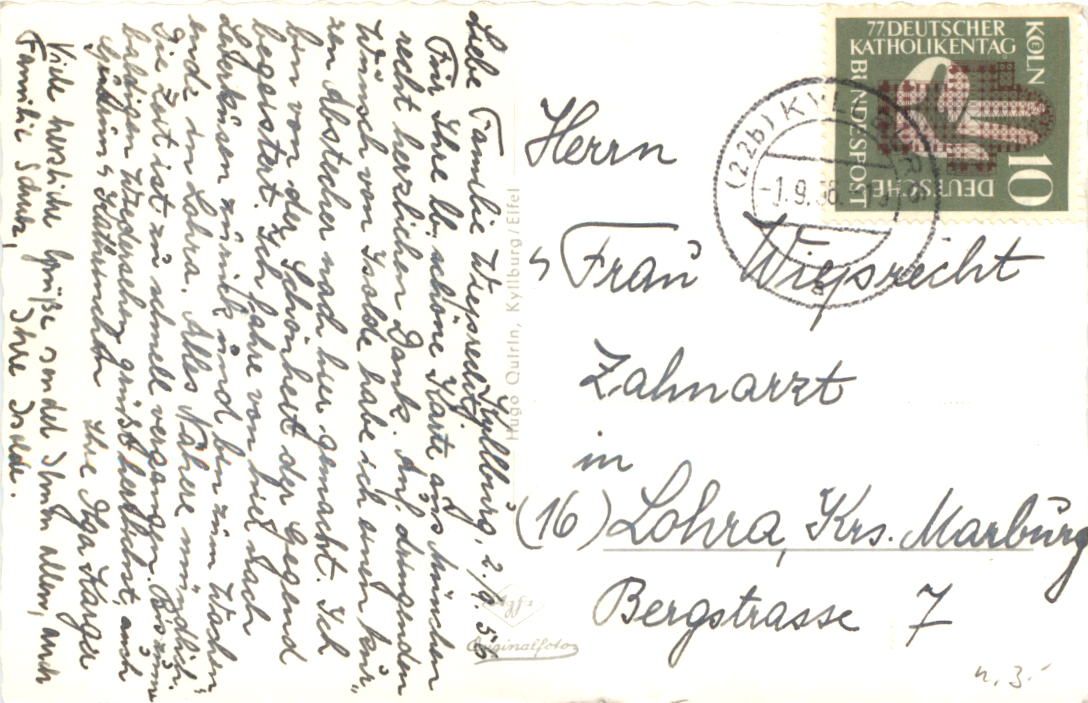 Kyllburg, 2./9.56
Liebe Familie Wiegrecht,
Für Ihre lb. schöne Karte aus München
recht herzlichen Dank. Auf dringenden
Wunsch von Isolde habe ich einen kur-
zen Abstecher nach hier gemacht. Ich
bin von der Schönheit der Gegend
begeistert. Ich fahre von hier nach
zurück und bin zum Wochen-
ende in Lohra. Alles Nähere mündlich.
Die Zeit ist zu schnell vergangen. Bis zum
baldigen Wiedersehen grüßt herzlichst, auch
Ihre Olga Karger
Viele herzliche Grüße sendet Ihnen allen, auch
Familie Schenk, Ihre Isolde.
Hugo Quirin, Kyllburg/Eifel
Agfa
Originalfoto
77 DEUTSCHER
KATHOLIKENTAG
KÖLN
DEUTSCHE
BUNDESPOST
10
(22b) KYLLBURG
-1.9.56.
a
Herrn
Frau Wiegrecht
Zahnarzt
in
(16) Lohra, Krs. Marburg
Bergstrasse 7
n. 3.-